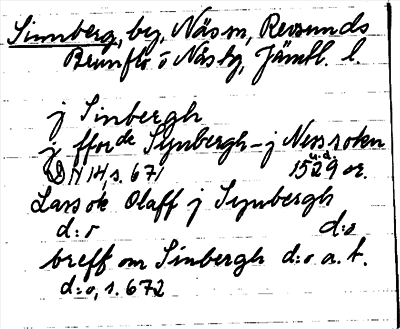 Sinnberg, by, Näs sn, Revsunds
Brunflo o Näs tg, Jämtl. l.
j Sinbergh
j ffor de Synbergh - j Nessrokn
DN 14, s. 671 1529 or.
u.d.
Lars ok Olaff j Synbergh
d:o d:o
breff om Sinbergh d:o a.t.
d:o, s. 672